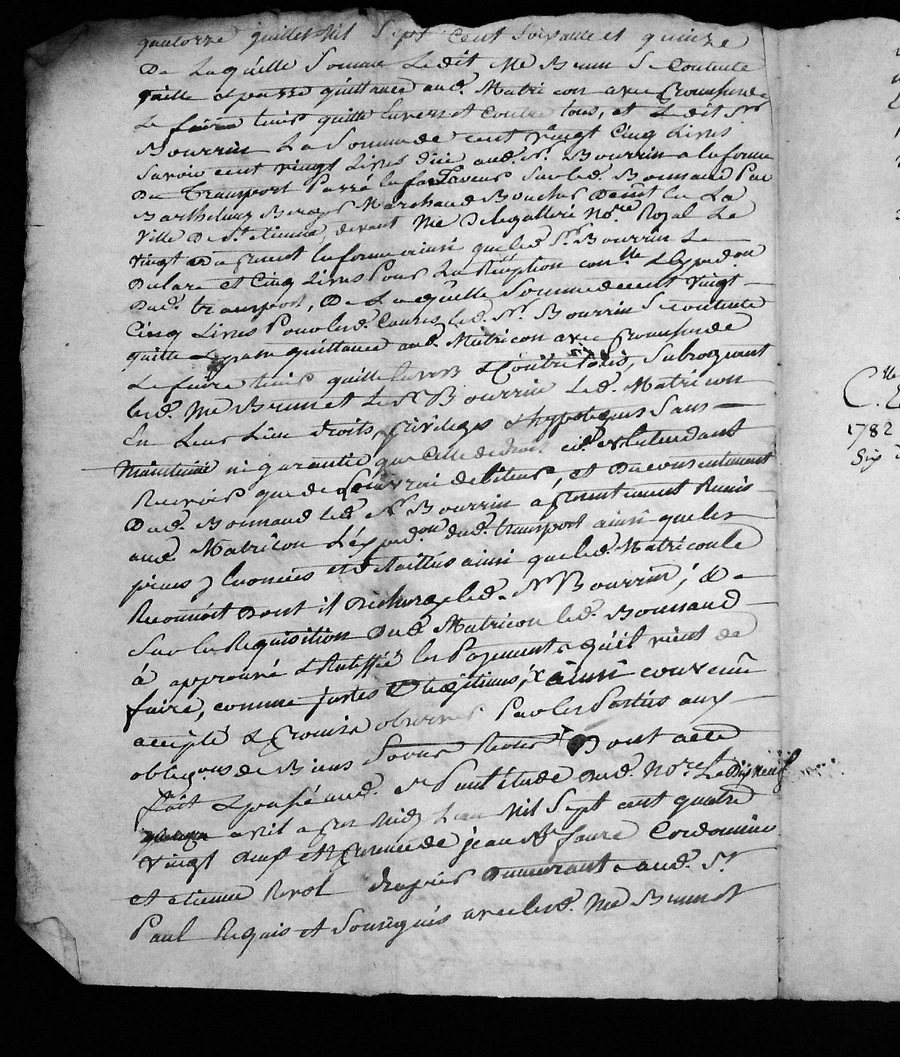 quatorze juillet Mil Sept Cent Soixante et quinze
De Laquelle Somme Ledit Me Brun Se Contente
quitte et passe quittance aud. Matricon avec promesse de
Le faire tenir quitte Envers et Contre tous, et Ledit Sr
Bourrin La Somme de cent vingt Cinq Livres
Savoir cent vingt Livres due aud. Sr. Bourrin a la forme
De Transport Passé la faveur Sur led. Bonnaud Par
Barthelemy Marchand Boucher De La
Ville De St. etienne, devant Me Delegallerie Nore Royal Le
vingt la forme ainsi que led. Sr. Bourrin Le
Declare et Cinq Livres Pour La Reception conlle Expedon
Dud. transport, De Laquelle Somme de cent vingt
Cinq Livres Pour les d. Causes led. Sr. Bourrin Se contente
quitte et passe quittance aud. Matricon avec Promesse de
Le faire tenir quitte Envers et Contre tous, Subrogeant
led. Me Brun et Led. Sr Bourrin Led. Matricon
En Leur Lieu droits, privileges et hypoteques Sans
Maintenue ni garantie que Celle de droit
que de vrai debiteur, et Du consentement
Dud. Bonnaud led. Sr. Bourrin a presentement Remis
aud. Matricon L'expedon dud. transport ainsi que les
pieces y Enoncées et detaillées ainsi que led. Matricon le
Reconnoit Dont il Decharge led. Sr Bourrin; &
Sur la Requisition Dud. Matricon led. Bonnaud
à approuvé & Ratiffié les Payements qu'il vient de
faire, comme justes & Legitimes; ainsi convenu
accepté & Promis observer Par les Parties aux
obligons de Biens Sous Dont acte
fait & passé aud. St Paul étude dud. Nore Le Dix neuf
avril apres Midy L'an Mil Sept cent quatre
vingt deux et Presence de jean faure Cordonnier
et etienne Revol Demeurant aud. St.
Paul Requis et Soussignés avec led. Me Brun et
1782